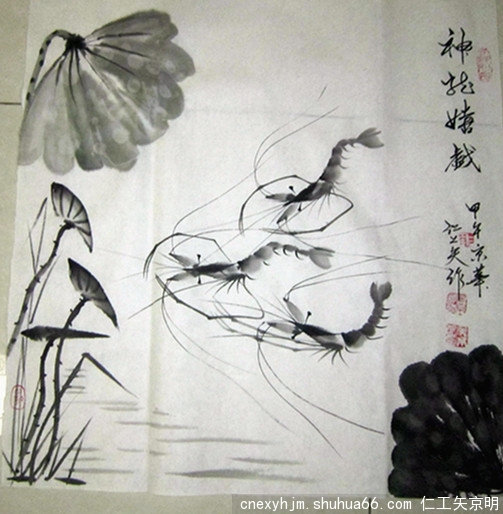 神龙嬉戏
甲午京华
仁工矢作
cnexyhjm.shuhua66.com 仁工矢京明